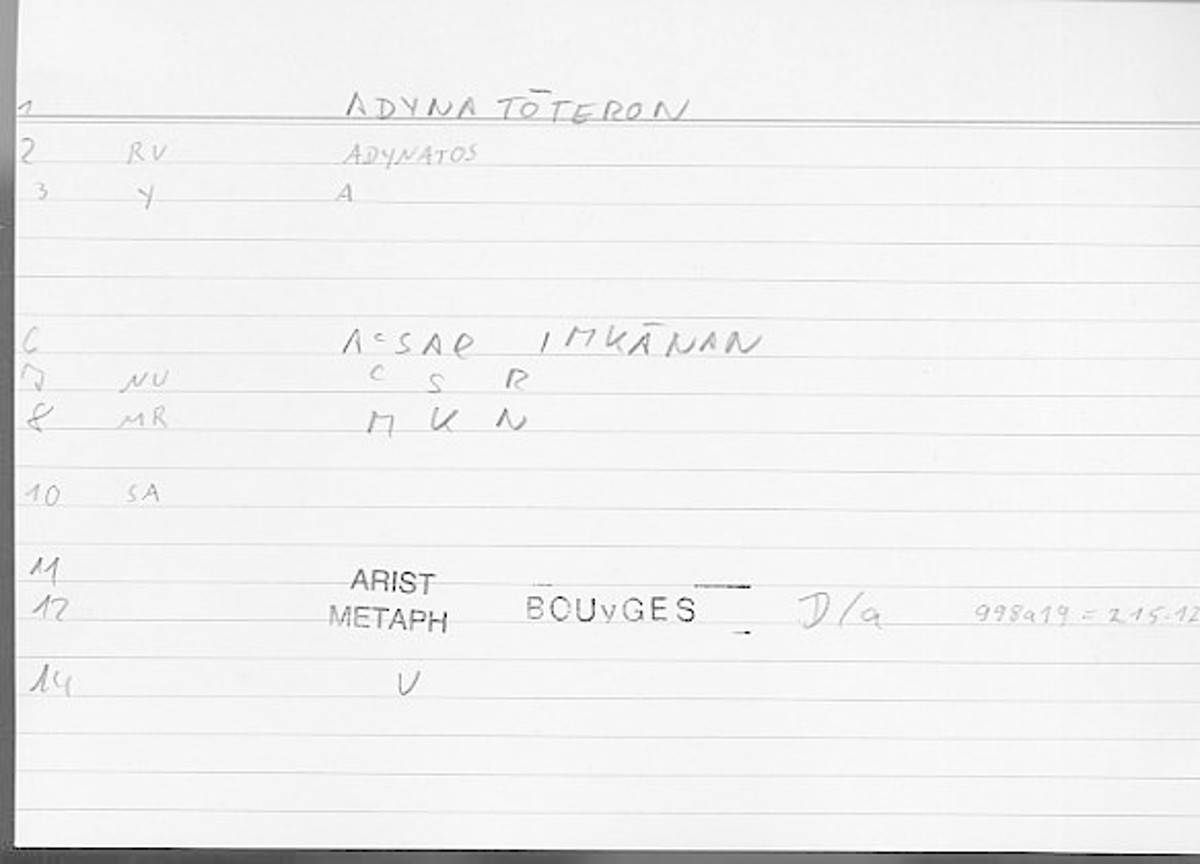 1 ADYNA TŌTERON
2 RV ADYNATOS
3 Y A
6 AᶜSAR IMKĀNAN
7 NU ᶜ S R
8 MR M K N
10 SA
11 ARIST
12 METAPH BOUyGES D/a 998a19 = 215.12
14 V